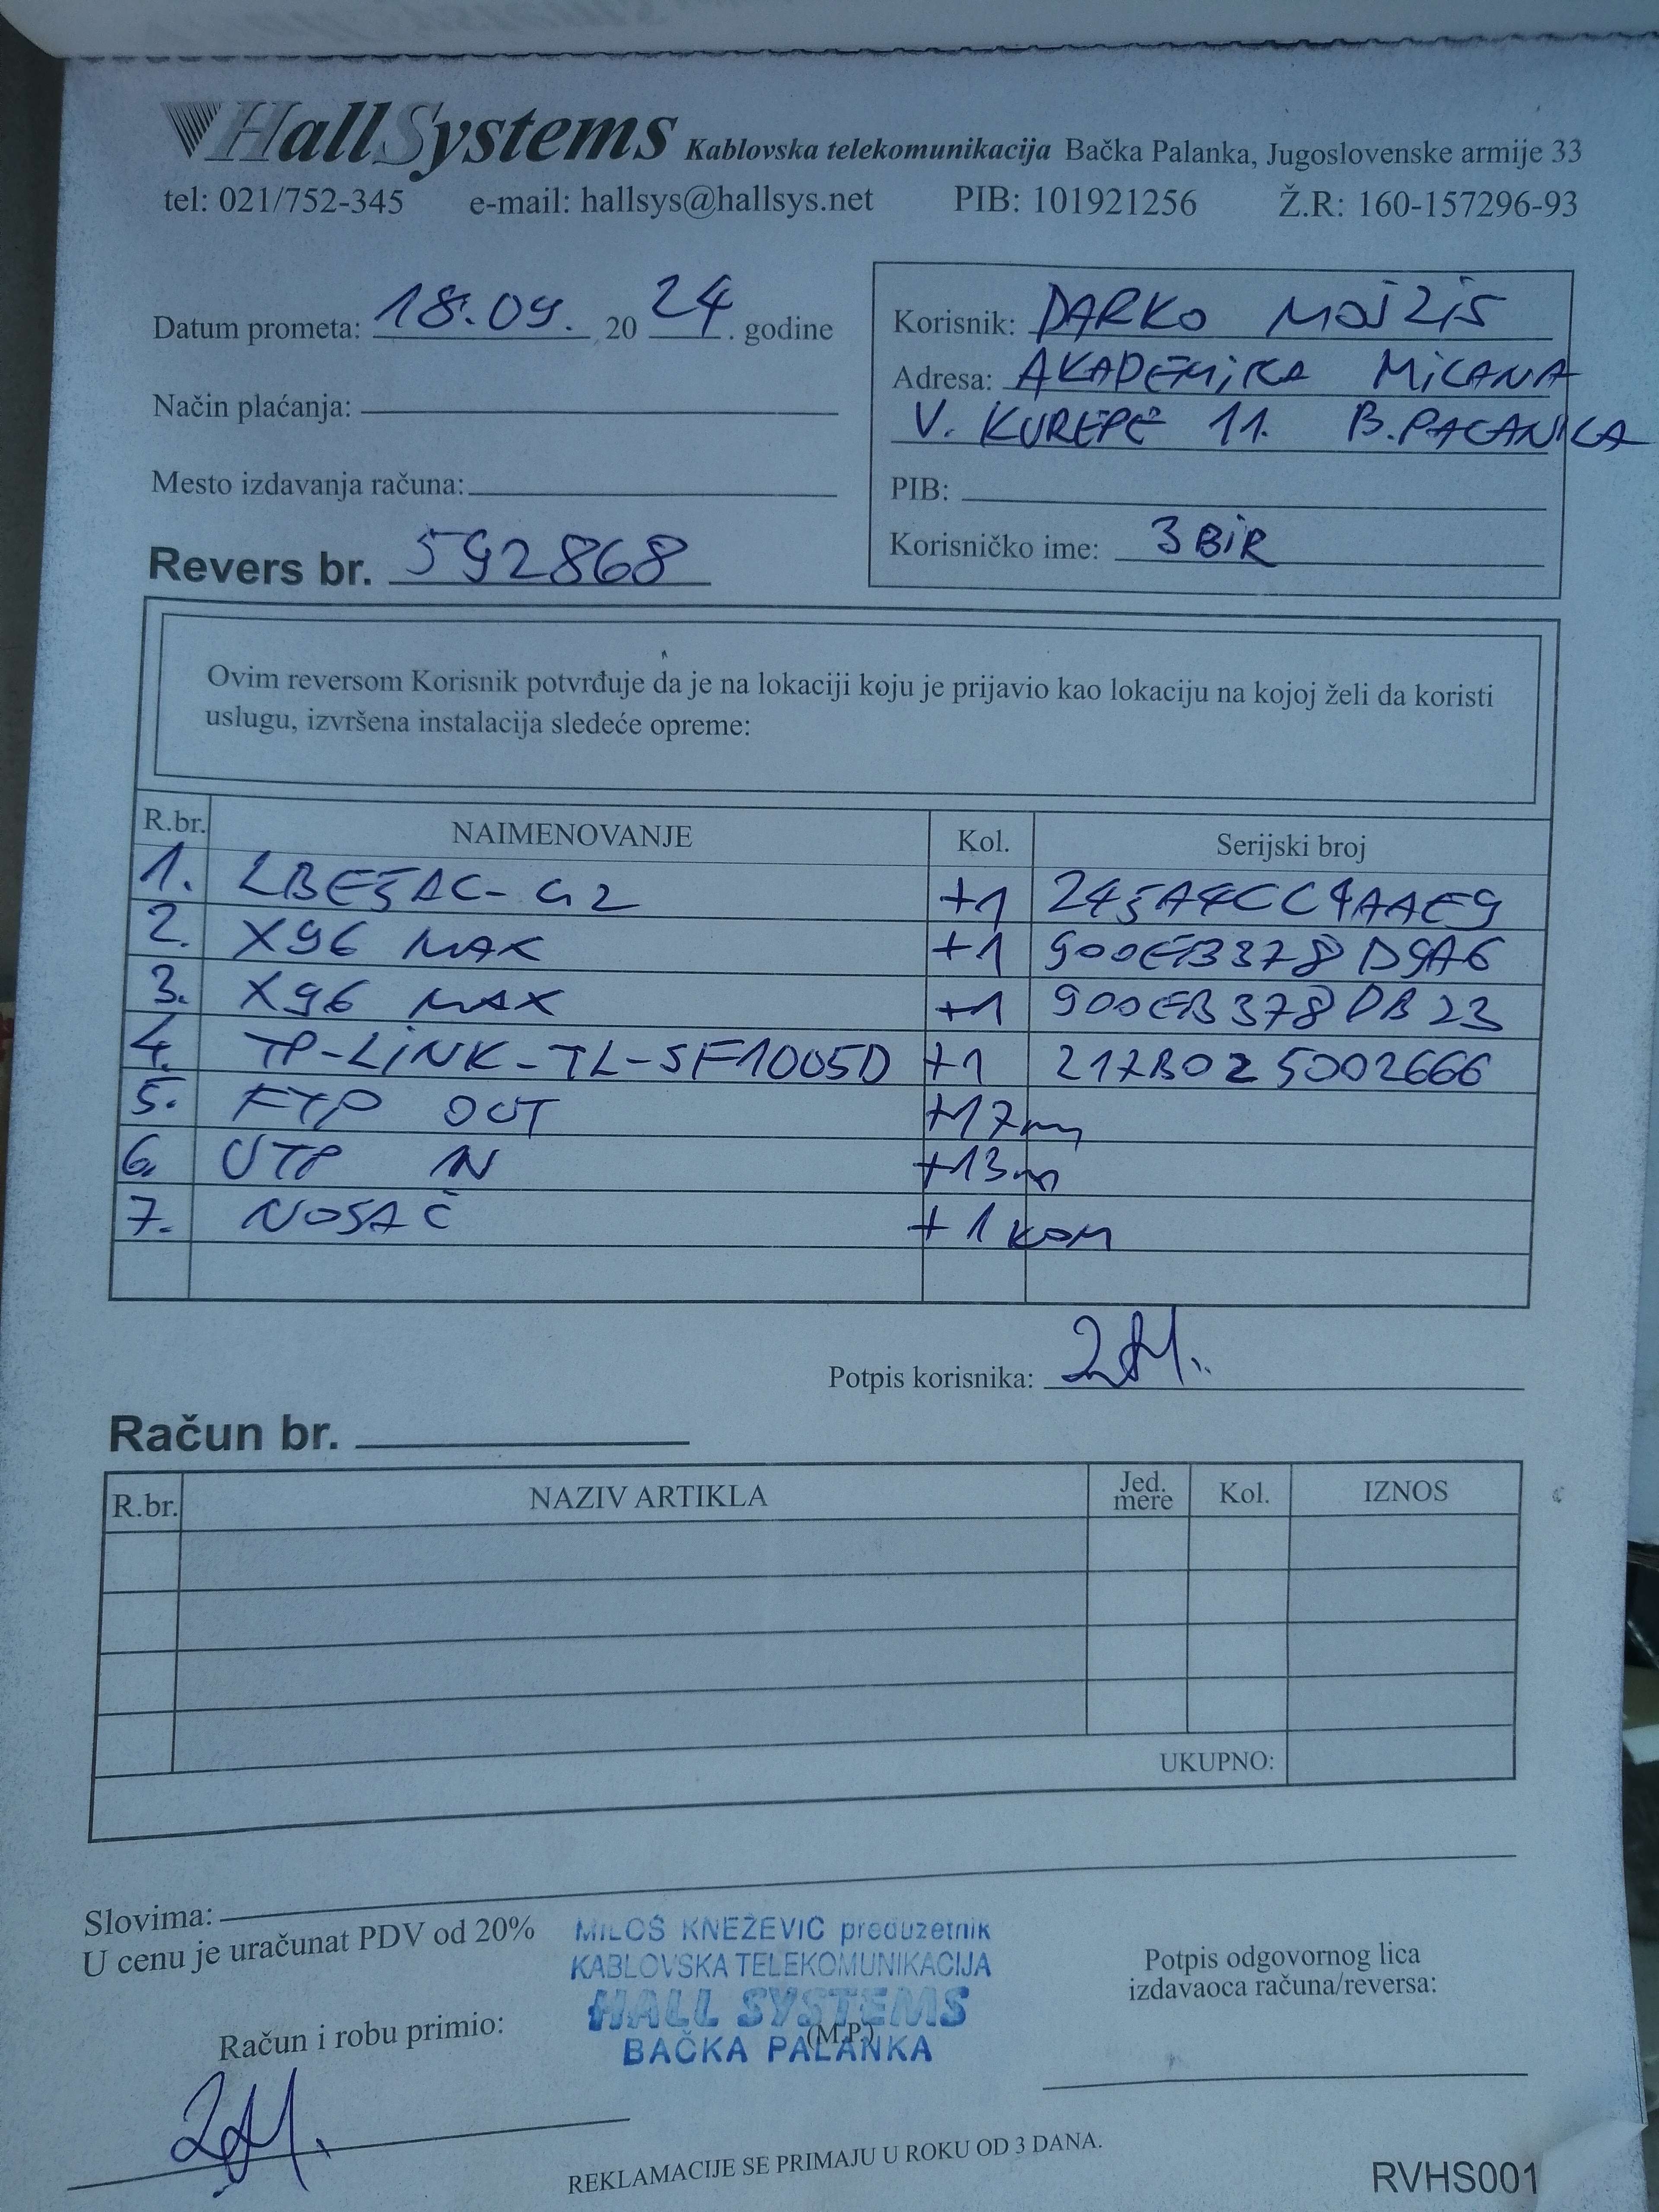 HallSystems Kablovska telekomunikacija Bačka Palanka, Jugoslovenske armije 33
tel: 021/752-345 e-mail: hallsys@hallsys.net PIB: 101921256 Ž.R: 160-157296-93
Datum prometa: 18.09. 2024. godine
Način plaćanja:
Mesto izdavanja računa:
Revers br. 592868
Korisnik: DARKO MOJŽIŠ
Adresa: AKADEMIKA MILANA
V. KUREPE 11. B.PALANKA
PIB:
Korisničko ime: 3BIR
Ovim reversom Korisnik potvrđuje da je na lokaciji koju je prijavio kao lokaciju na kojoj želi da koristi
uslugu, izvršena instalacija sledeće opreme:
R.br. NAIMENOVANJE Kol. Serijski broj
1. LBE5AC-G2 +1 245A4CC4AAE9
2. X96 MAX +1 900EB378D9A6
3. X96 MAX +1 900EB378DB23
4. TP-LINK-TL-SF1005D +1 217B025002666
5. FTP OUT +17m
6. UTP IN +13m
7. NOSAČ +1 KOM
Potpis korisnika:
Račun br.
R.br. NAZIV ARTIKLA Jed. mere Kol. IZNOS
UKUPNO:
Slovima:
U cenu je uračunat PDV od 20%
MILOŠ KNEŽEVIĆ preduzetnik
KABLOVSKA TELEKOMUNIKACIJA
HALL SYSTEMS
(M.P)
BAČKA PALANKA
Potpis odgovornog lica
izdavaoca računa/reversa:
Račun i robu primio:
REKLAMACIJE SE PRIMAJU U ROKU OD 3 DANA.
RVHS001